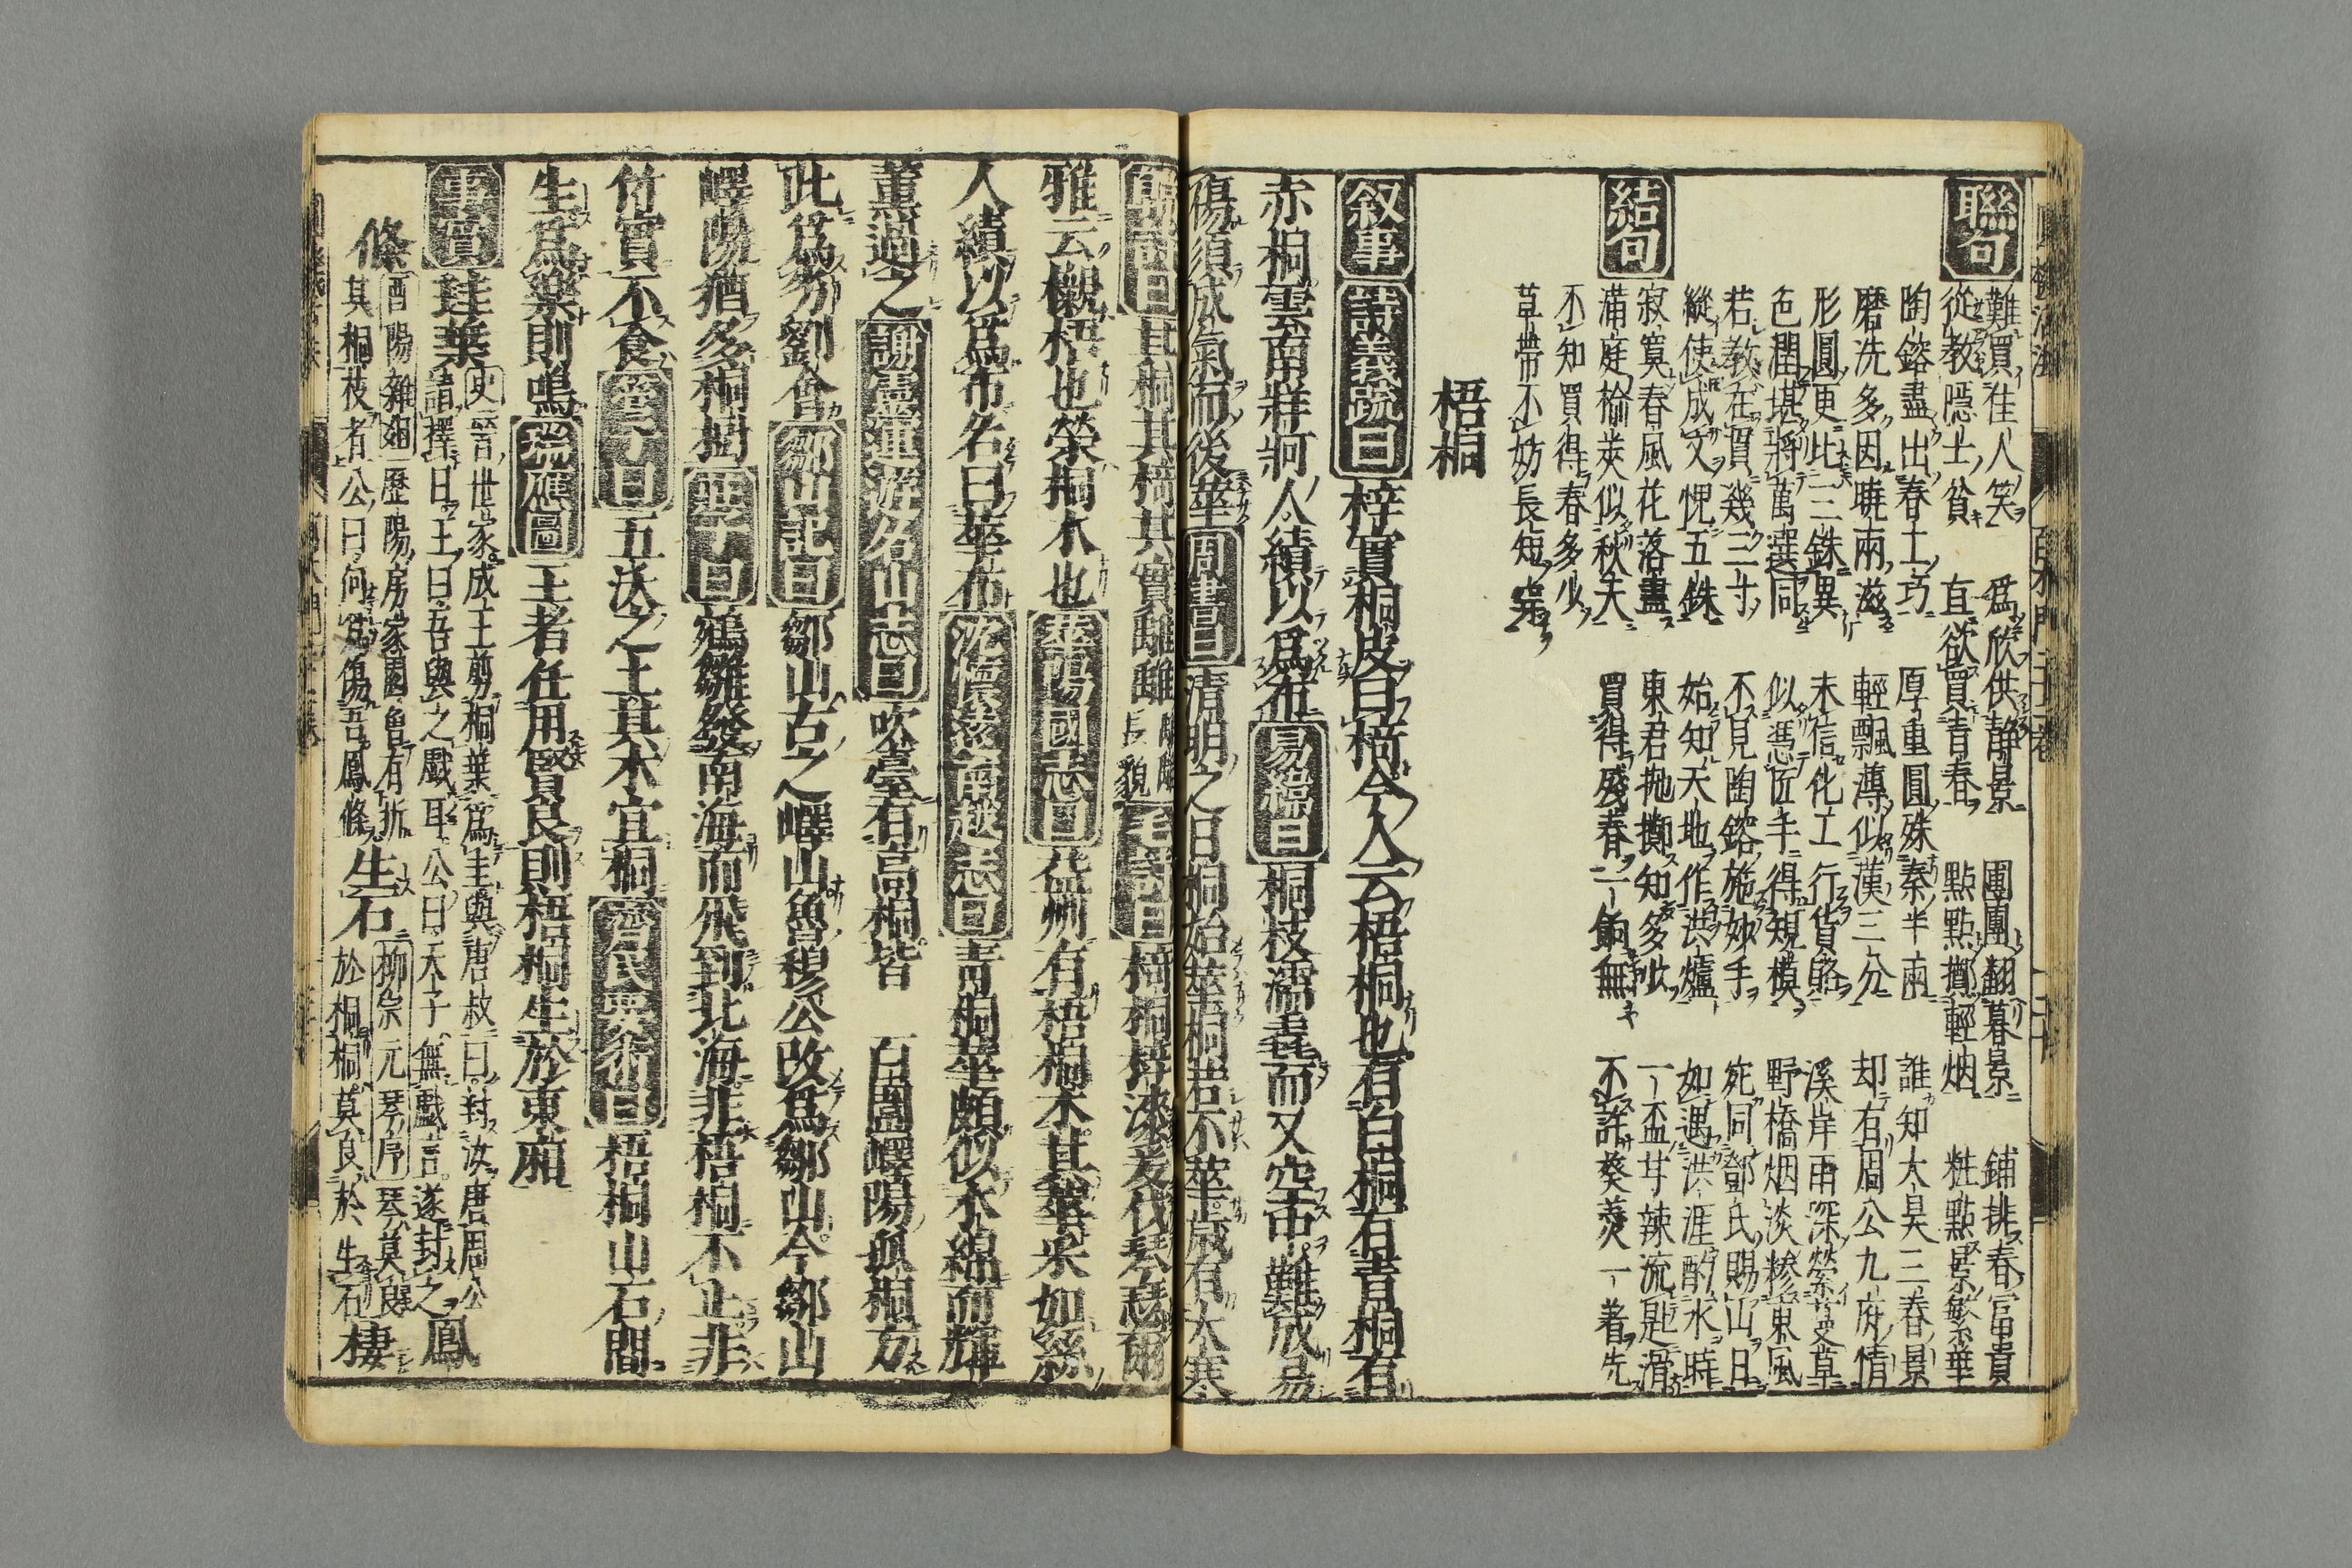 聯句
難買佳人笑 爲欣供靜景 團團翻暮景 鋪排春富貴
從教隱士貧 直欲買青春 點點擲輕烟 粧點景繁華
陶鎔盡出春工巧 厚重圓殊秦半兩 誰知太昊三春景
磨洗多因曉雨滋 輕飄薄似漢三分 却有周公九府情
形圓更比三銖異 未信化工行貨賂 溪岸雨深縈芰草
色潤堪將萬選同 似憑匠手得規模 野橋烟淡糝東風
若教在貫幾三寸 不見陶鎔施妙手 死同鄧氏賜山日
縱使成文愧五銖 始知天地作洪爐 如遇洪涯酌水時
結句
寂寞春風花落盡 東君抛擲知多少 一盃芽辣流匙滑
滿庭榆莢似秋天 買得殘春一餉無 不許葵羹一着先
不知買得春多少
草帶不妨長短穿
梧桐
叙事 詩義疏曰 梓實桐皮曰椅今人云梧桐也有白桐有青桐有
赤桐雲南牂牁人績以爲布 易緯曰 桐枝濡毳而又空中難成易
傷須成氣而後華 周書曰 清明之日桐始華桐若不華歲有大寒
毛詩曰 其桐其椅其實離離 離離長貌 毛詩曰 椅桐梓漆爰伐琴瑟爾
雅云櫬梧也榮桐木也 華陽國志曰 益州有梧桐木其華采如絲
人績以爲布名曰華布 沈懷遠南越志曰 青桐華頗似木綿而輝
薰過之 謝靈運游名山志曰 吹臺有高桐皆百圍嶧陽孤桐方
此爲劣劉會 鄒山記曰 鄒山古之嶧山魯穆公改爲鄒山今鄒山
嶧陽猶多桐樹 莊子曰 鵷雛發南海而飛到北海非梧桐不止非
竹實不食 管子曰 五沃之土其木宜桐 齊民要術曰 梧桐山石間
生爲樂則鳴 瑞應圖 王者任用賢良則梧桐生於東廂
事實 珪葉 史晉世家成王剪桐葉爲圭與唐叔曰封汝唐周公
請擇日王曰吾與之戲耳公曰天子無戲言遂封之 鳳
條 酉陽雜俎歷陽房家園魯有折
其桐枝者公曰何爲傷吾鳳條 生石 柳宗元琴序琴莫良
於桐桐莫良於生石 棲